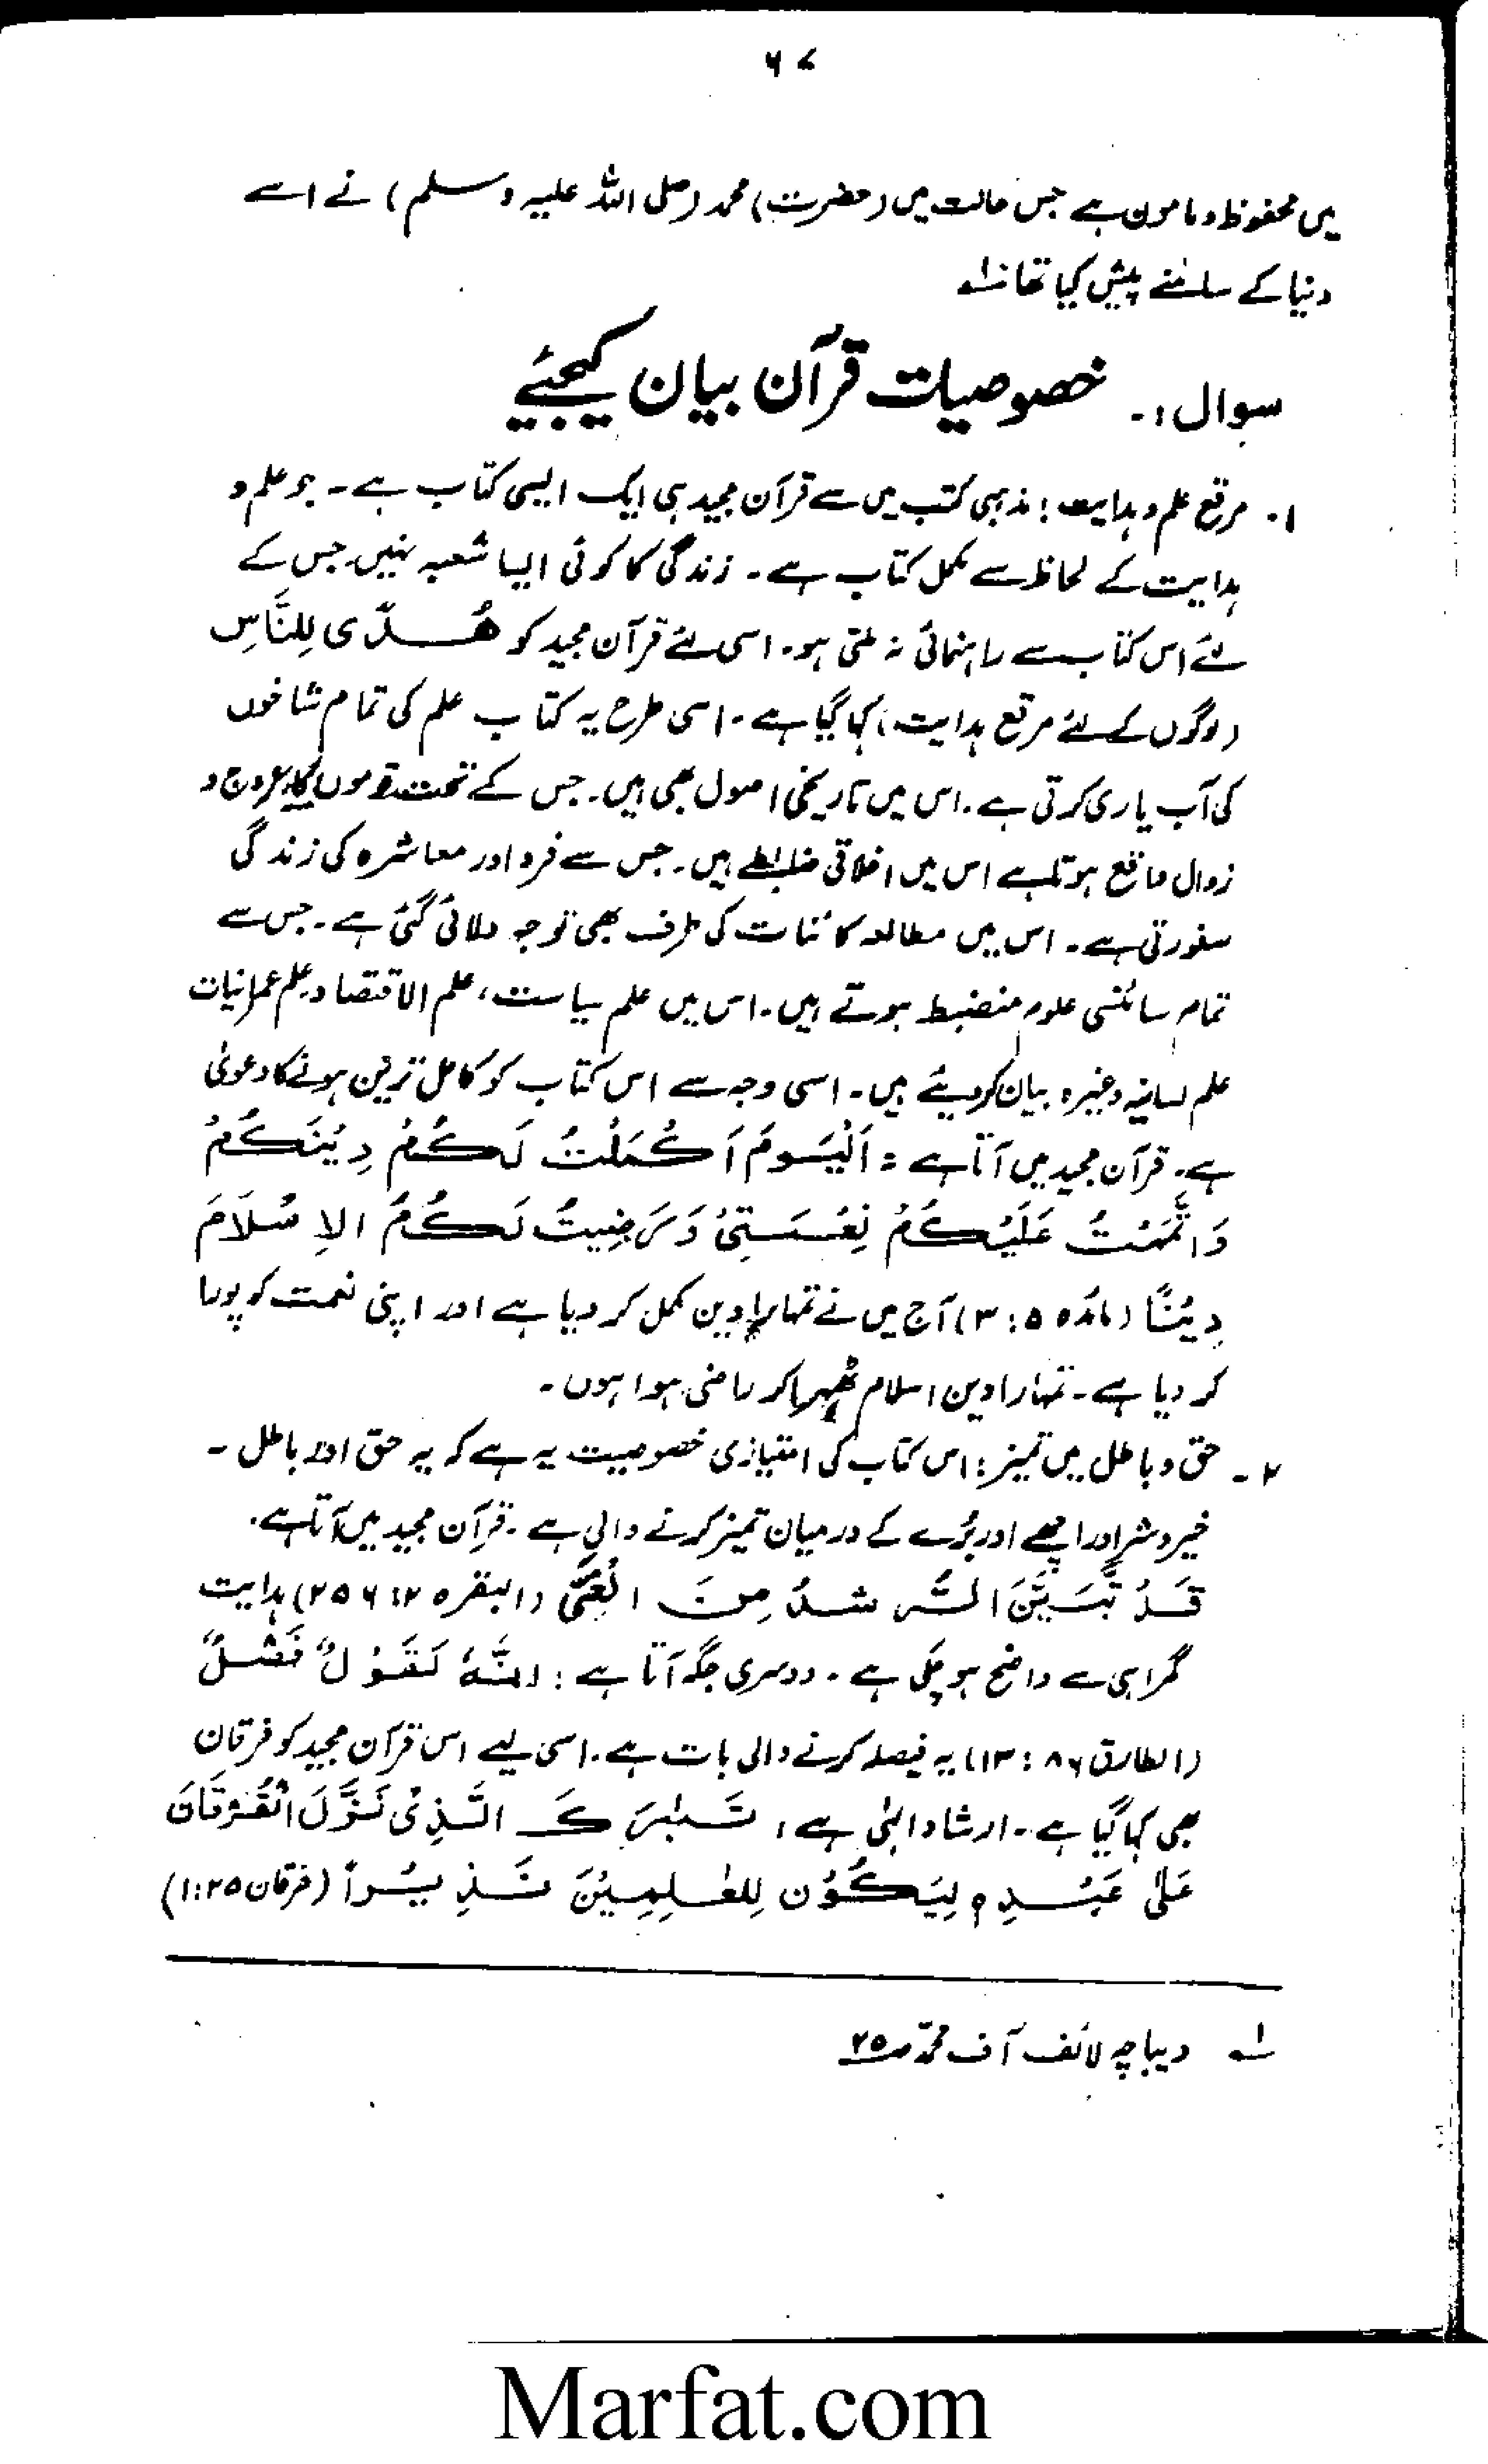 ۶۷
میں محفوظ و مامون ہے جس حالت میں (حضرت) محمد (صلی اللہ علیہ وسلم) نے اسے
دنیا کے سامنے پیش کیا تھا۔ ؎۱
سوال :۔ خصوصیات قرآن بیان کیجئے
۱۔ مرقع علم و ہدایت : مذہبی کتب میں سے قرآن مجید ہی ایک ایسی کتاب ہے۔ جو علم و
ہدایت کے لحاظ سے مکمل کتاب ہے۔ زندگی کا کوئی ایسا شعبہ نہیں جس کے
لئے اس کتاب سے راہنمائی نہ ملتی ہو۔ اسی لئے قرآن مجید کو هُدًى لِلنَّاسِ
(لوگوں کے لئے مرقع ہدایت) کہا گیا ہے۔ اسی طرح یہ کتاب علم کی تمام شاخوں
کی آب یاری کرتی ہے۔ اس میں تاریخی اصول بھی ہیں۔ جس کے تحت قوموں کا عروج و
زوال واقع ہوتا ہے اس میں اخلاقی ضابطے ہیں۔ جس سے فرد اور معاشرہ کی زندگی
سنورتی ہے۔ اس میں مطالعہ کائنات کی طرف بھی توجہ دلائی گئی ہے۔ جس سے
تمام سائنسی علوم منضبط ہوتے ہیں۔ اس میں علم سیاست، علم الاقتصاد، علم عمرانیات
علم لسانیہ وغیرہ بیان کردیئے ہیں۔ اسی وجہ سے اس کتاب کو کامل ترین ہونے کا دعویٰ
ہے۔ قرآن مجید میں آتا ہے : اَلْيَوْمَ اَكْمَلْتُ لَكُمْ دِيْنَكُمْ
وَاَتْمَمْتُ عَلَيْكُمْ نِعْمَتِيْ وَرَضِيْتُ لَكُمُ الاِسْلَامَ
دِيْنًا (مائدہ ۵ : ۳) آج میں نے تمہارا دین مکمل کر دیا ہے اور اپنی نعمت کو پورا
کر دیا ہے۔ تمہارا دین اسلام ٹھہرا کر راضی ہوا ہوں۔
۲۔ حق و باطل میں تمیز : اس کتاب کی امتیازی خصوصیت یہ ہے کہ یہ حق اور باطل۔
خیر و شر اور اچھے اور بُرے کے درمیان تمیز کرنے والی ہے۔ قرآن مجید میں آتا ہے۔
قَدْ تَّبَيَّنَ الرُّشْدُ مِنَ الْغَيِّ (البقرہ ۲ : ۲۵۶) ہدایت
گمراہی سے واضح ہو چکی ہے۔ دوسری جگہ آتا ہے : اِنَّهٗ لَقَوْلٌ فَصْلٌ
(الطارق ۸۶ : ۱۳) یہ فیصلہ کرنے والی بات ہے۔ اسی لیے اس قرآن مجید کو فرقان
بھی کہا گیا ہے۔ ارشاد الٰہی ہے : تَبٰرَكَ الَّذِيْ نَزَّلَ الْفُرْقَانَ
عَلٰى عَبْدِهٖ لِيَكُوْنَ لِلْعٰلَمِيْنَ نَذِيْرًا (فرقان ۲۵ : ۱)
؎۱ دیباچہ لائف آف محمدؐ ص ۲۵
Marfat.com